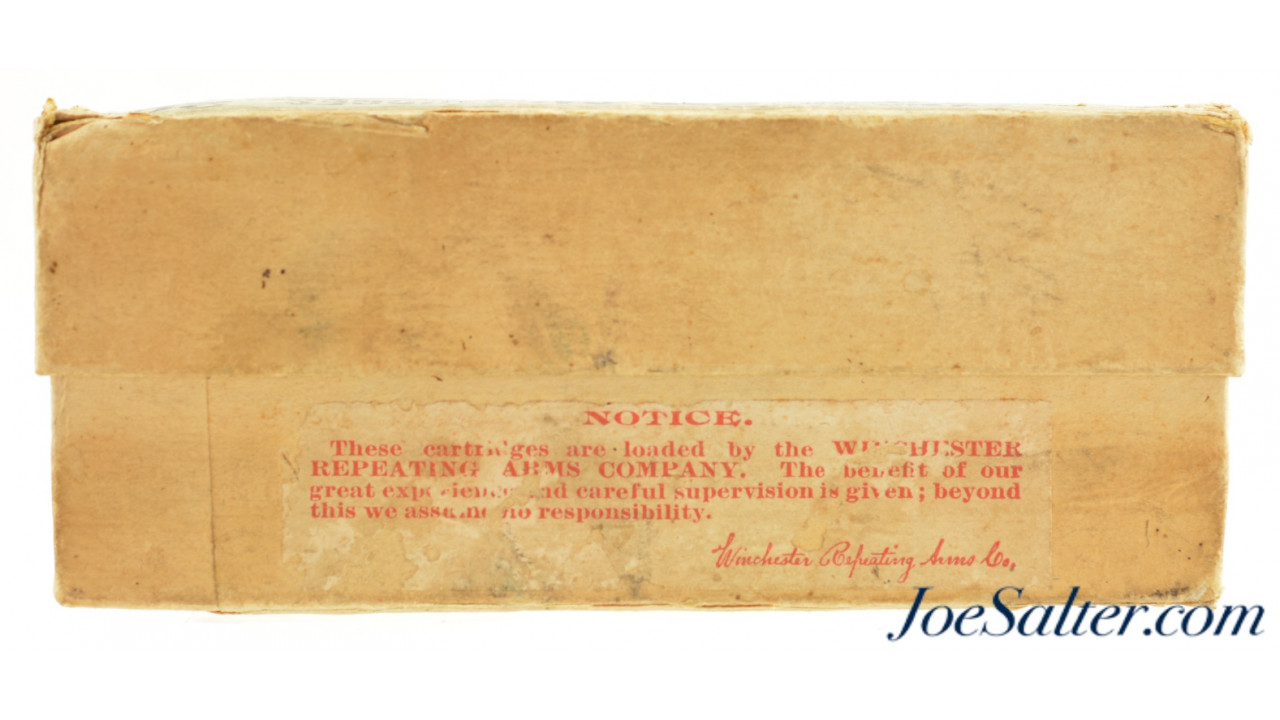 NOTICE.
These cartridges are loaded by the WINCHESTER
REPEATING ARMS COMPANY. The benefit of our
great experience and careful supervision is given; beyond
this we assume no responsibility.
Winchester Repeating Arms Co.
JoeSalter.com